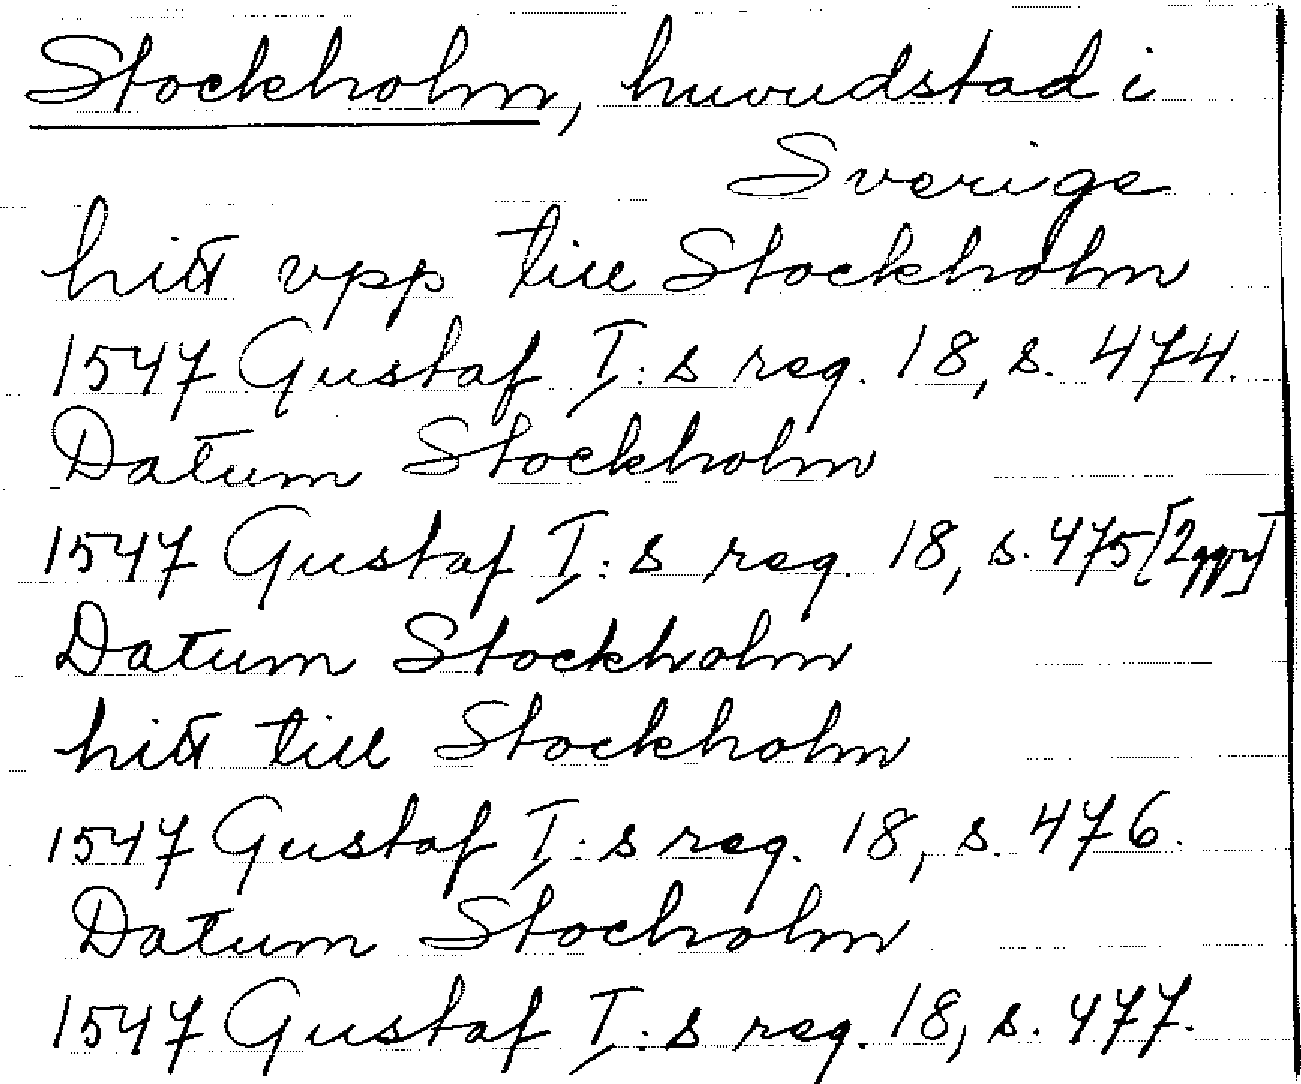 Stockholm, huvudstad i
Sverige
hitt vpp till Stockholm
1547 Gustaf I:s reg. 18, s. 474.
Datum Stockholm
1547 Gustaf I:s reg. 18, s. 475 [2 ggr]
Datum Stockholm
hitt till Stockholm
1547 Gustaf I:s reg. 18, s. 476.
Datum Stocholm
1547 Gustaf I:s reg. 18, s. 477.